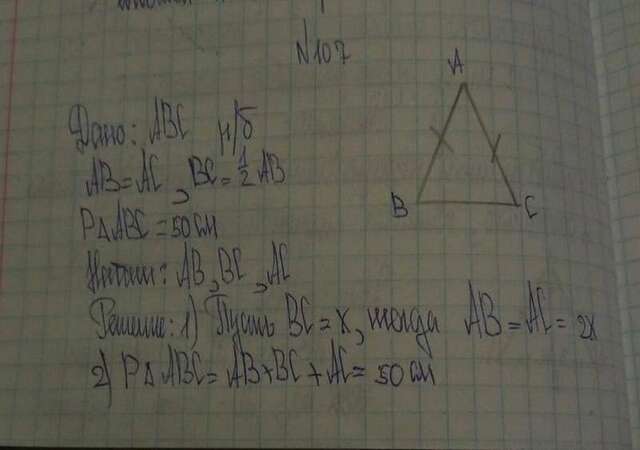 N107
Дано: ABC р/б
AB=AC, BC=1/2 AB
P△ABC=50см
Найти: AB, BC, AC
Решение: 1) Пусть BC=x, тогда AB=AC=2x
2) P△ABC=AB+BC+AC=50см
A
B
C